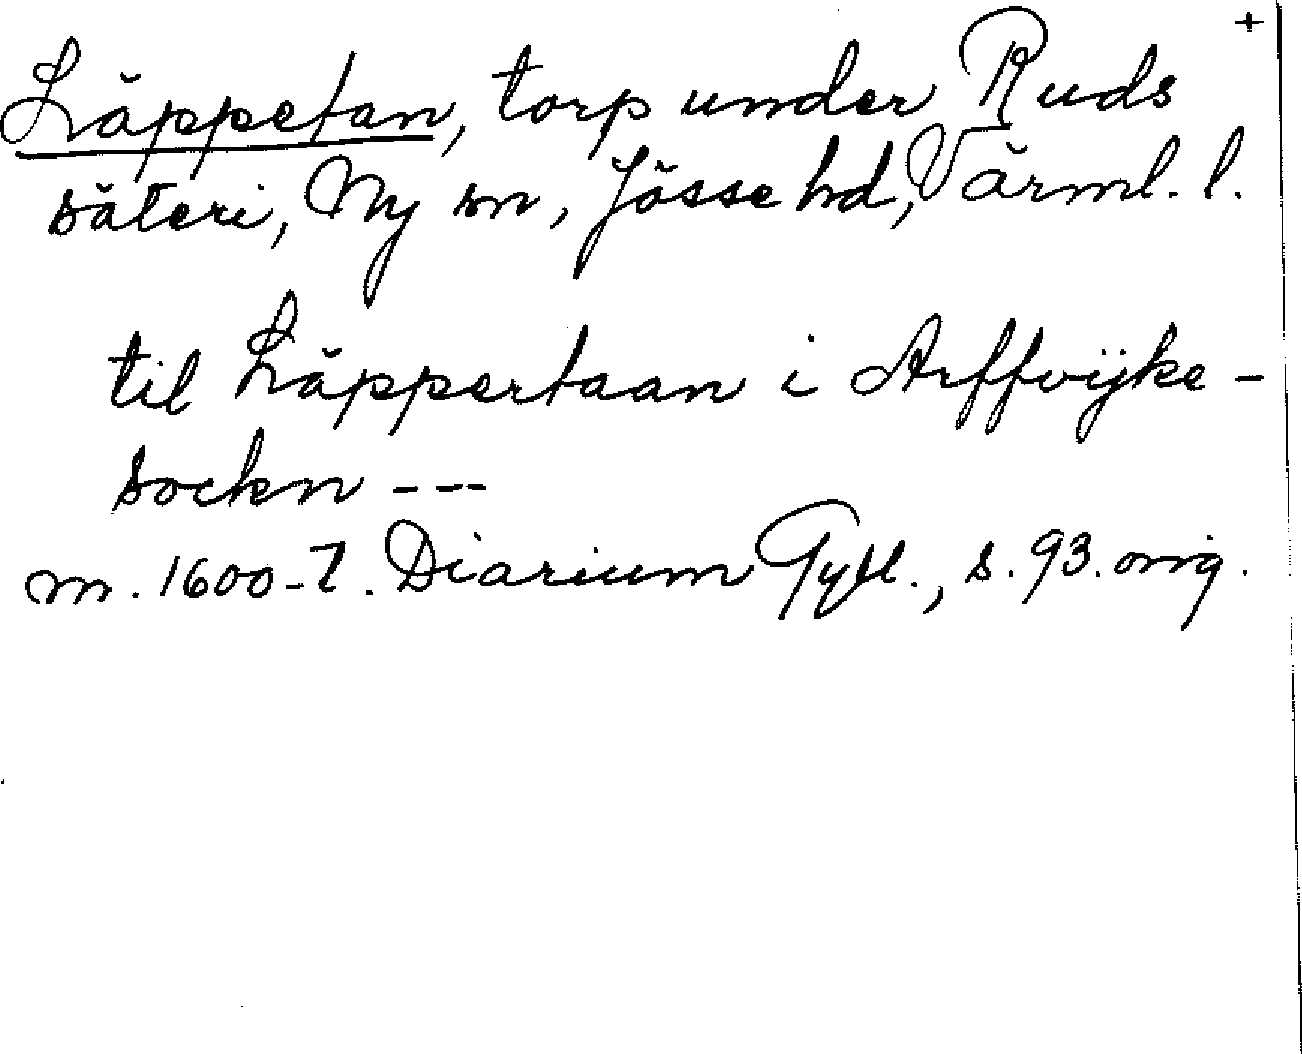 +
Läppetan, torp under Ruds
säteri, Ny sn, Jösse hd, Värml. l.
til Läppertaan i Arffvijke-
sockn ---
m. 1600-t. Diarium Gyll., s. 93. orig.